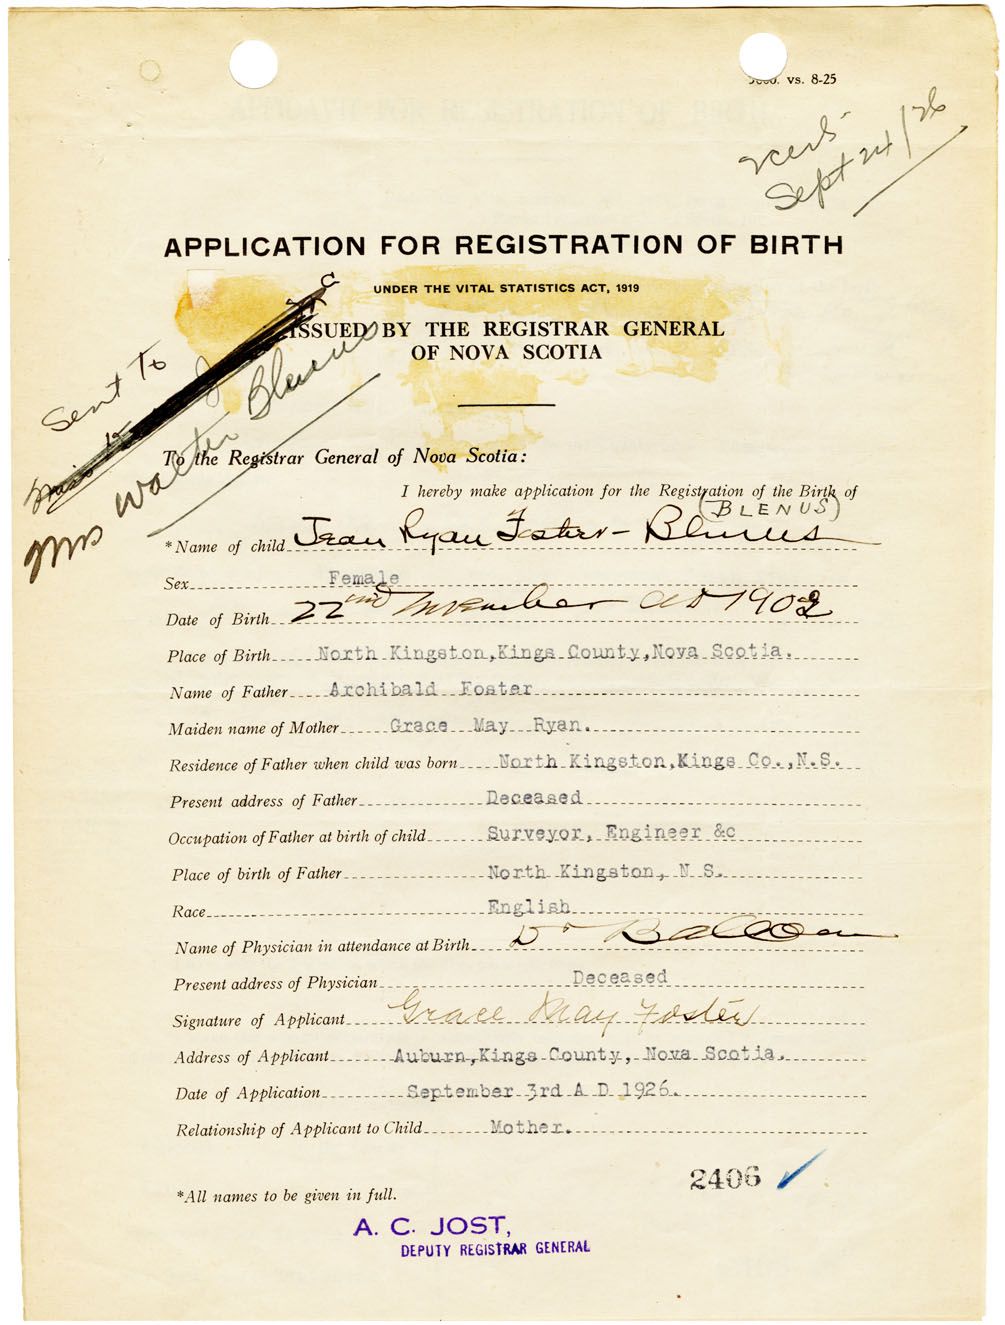 vs. 8-25
Sept 24/26
APPLICATION FOR REGISTRATION OF BIRTH
UNDER THE VITAL STATISTICS ACT, 1919
ISSUED BY THE REGISTRAR GENERAL
OF NOVA SCOTIA
Sent To
Mrs Walter Blenus
To the Registrar General of Nova Scotia:
I hereby make application for the Registration of the Birth of
(BLENUS)
*Name of child Jean Ryan Foster - Blenus
Sex Female
Date of Birth 22nd November AD 1902
Place of Birth North Kingston, Kings County, Nova Scotia.
Name of Father Archibald Foster
Maiden name of Mother Grace May Ryan.
Residence of Father when child was born North Kingston, Kings Co., N.S.
Present address of Father Deceased
Occupation of Father at birth of child Surveyor, Engineer &c
Place of birth of Father North Kingston, N S.
Race English
Name of Physician in attendance at Birth Dr
Present address of Physician Deceased
Signature of Applicant Grace May Foster
Address of Applicant Auburn, Kings County, Nova Scotia.
Date of Application September 3rd A D 1926.
Relationship of Applicant to Child Mother.
2406
*All names to be given in full.
A. C. JOST,
DEPUTY REGISTRAR GENERAL